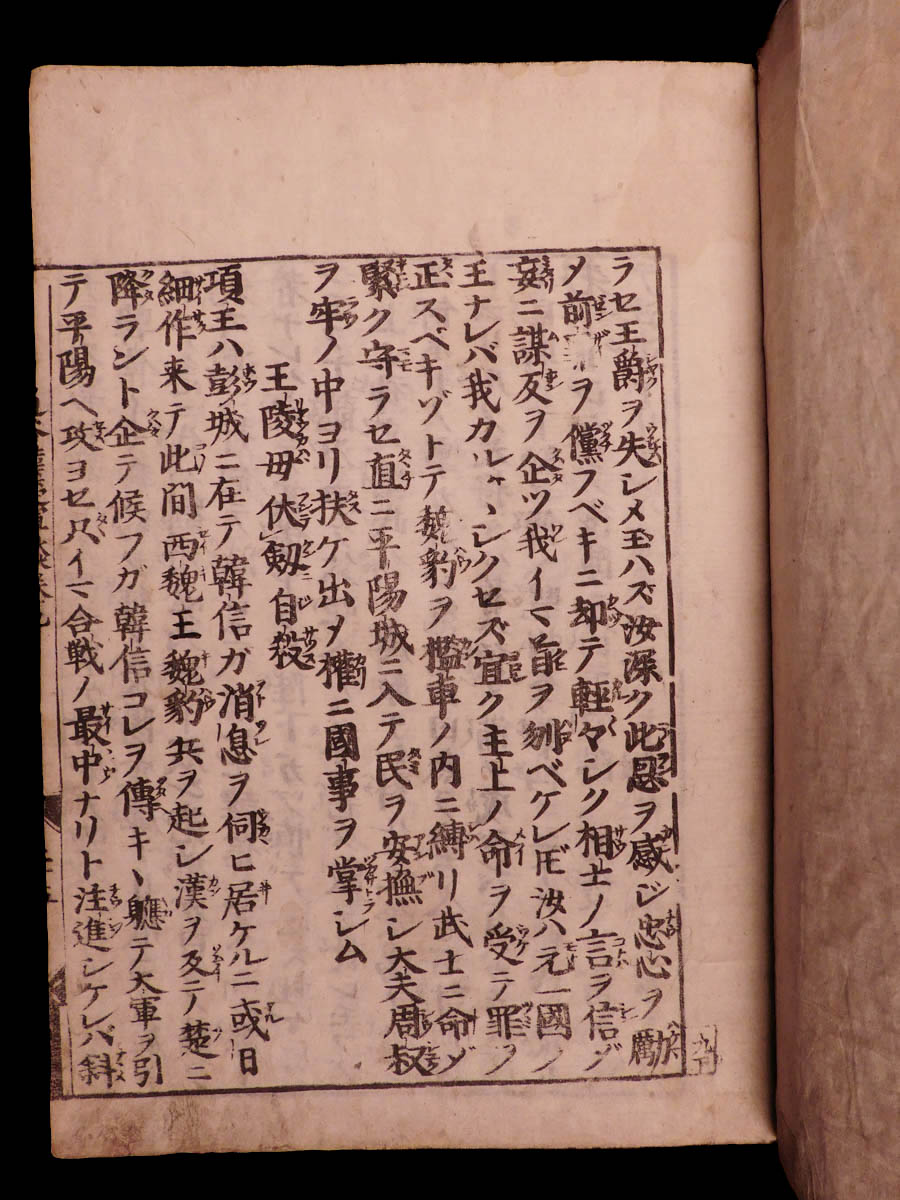 ラセ王爵ヲ失シメ玉ハズ汝深ク此恩ヲ感ジ忠心ヲ勵
メ前罪ヲ儻フベキニ却テ輕々シク相士ノ言ヲ信ジ
妄ニ謀反ヲ企ツ我イマ首ヲ刎ベケレ𪜈汝ハ元一國ノ
王ナレバ我カルヾヽシクセズ宜ク主上ノ命ヲ受テ罪ヲ
正スベキゾトテ魏豹ヲ檻車ノ内ニ縛リ武士ニ命ジ
緊ク守ラセ直ニ平陽城ニ入テ民ヲ安撫シ大夫周叔
ヲ牢ノ中ヨリ扶ケ出メ權ニ國事ヲ掌シム
王陵母伏劔自殺
項王ハ彭城ニ在テ韓信ガ消息ヲ伺ヒ居ケルニ或日
細作来テ此間西魏王魏豹兵ヲ起シ漢ヲ反テ楚ニ
降ラント企テ候フガ韓信コレヲ傳キヽ軈テ大軍ヲ引
テ平陽ヘ攻ヨセ只イマ合戦ノ最中ナリト注進シケレバ斜